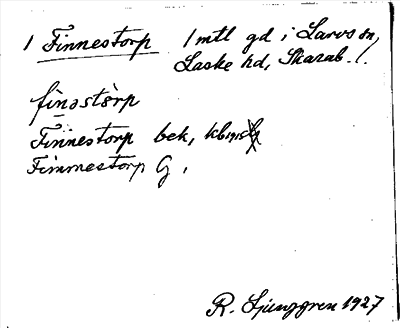 1 Finnestorp 1 mtl gd i Larvs sn,
Laske hd, Skarab. l.
finəstòrp
Finnestorp bek,
Fimmestorp G.
R. Ljunggren 1927